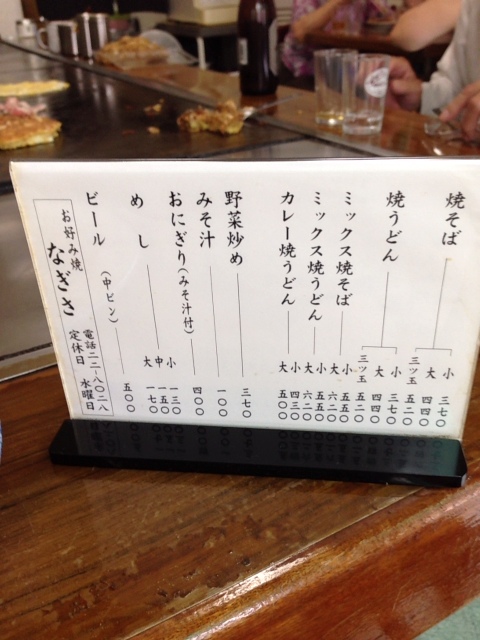 焼そば 小 三七〇
大 四四〇
三ツ玉 五二〇
焼うどん 小 三七〇
大 四四〇
三ツ玉 五二〇
ミックス焼そば 小 五五〇
大 六二〇
ミックス焼うどん 小 五五〇
大 六二〇
カレー焼うどん 小 四三〇
大 五〇〇
野菜炒め 三七〇
みそ汁 一〇〇
おにぎり(みそ汁付) 四〇〇
めし 小 一三〇
中 一五〇
大 一七〇
ビール (中ビン) 五〇〇
お好み焼 なぎさ
電話 二二-八〇二八
定休日 水曜日